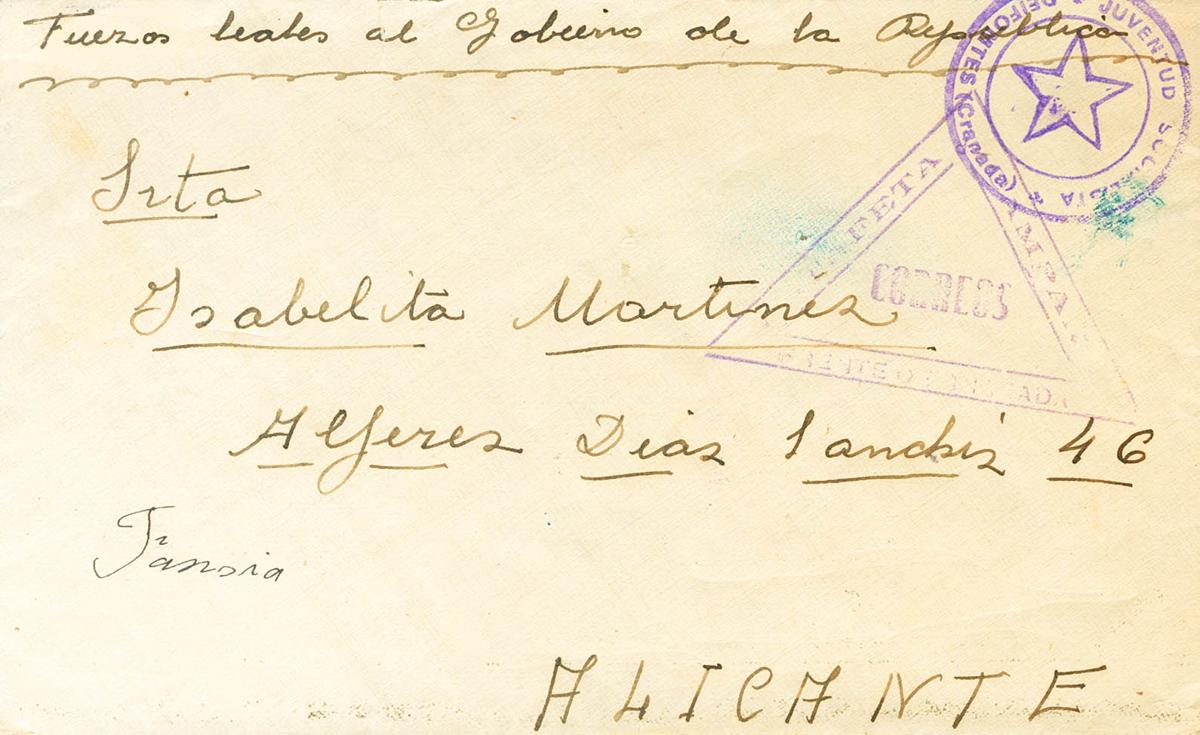 Fuerzas leales al Gobierno de la República
JUVENTUD SOCIALISTA * DEIFONTES (Granada) *
CORREOS
Srta
Isabelita Martinez
Alferez Diaz Sanchiz 46
ALICANTE